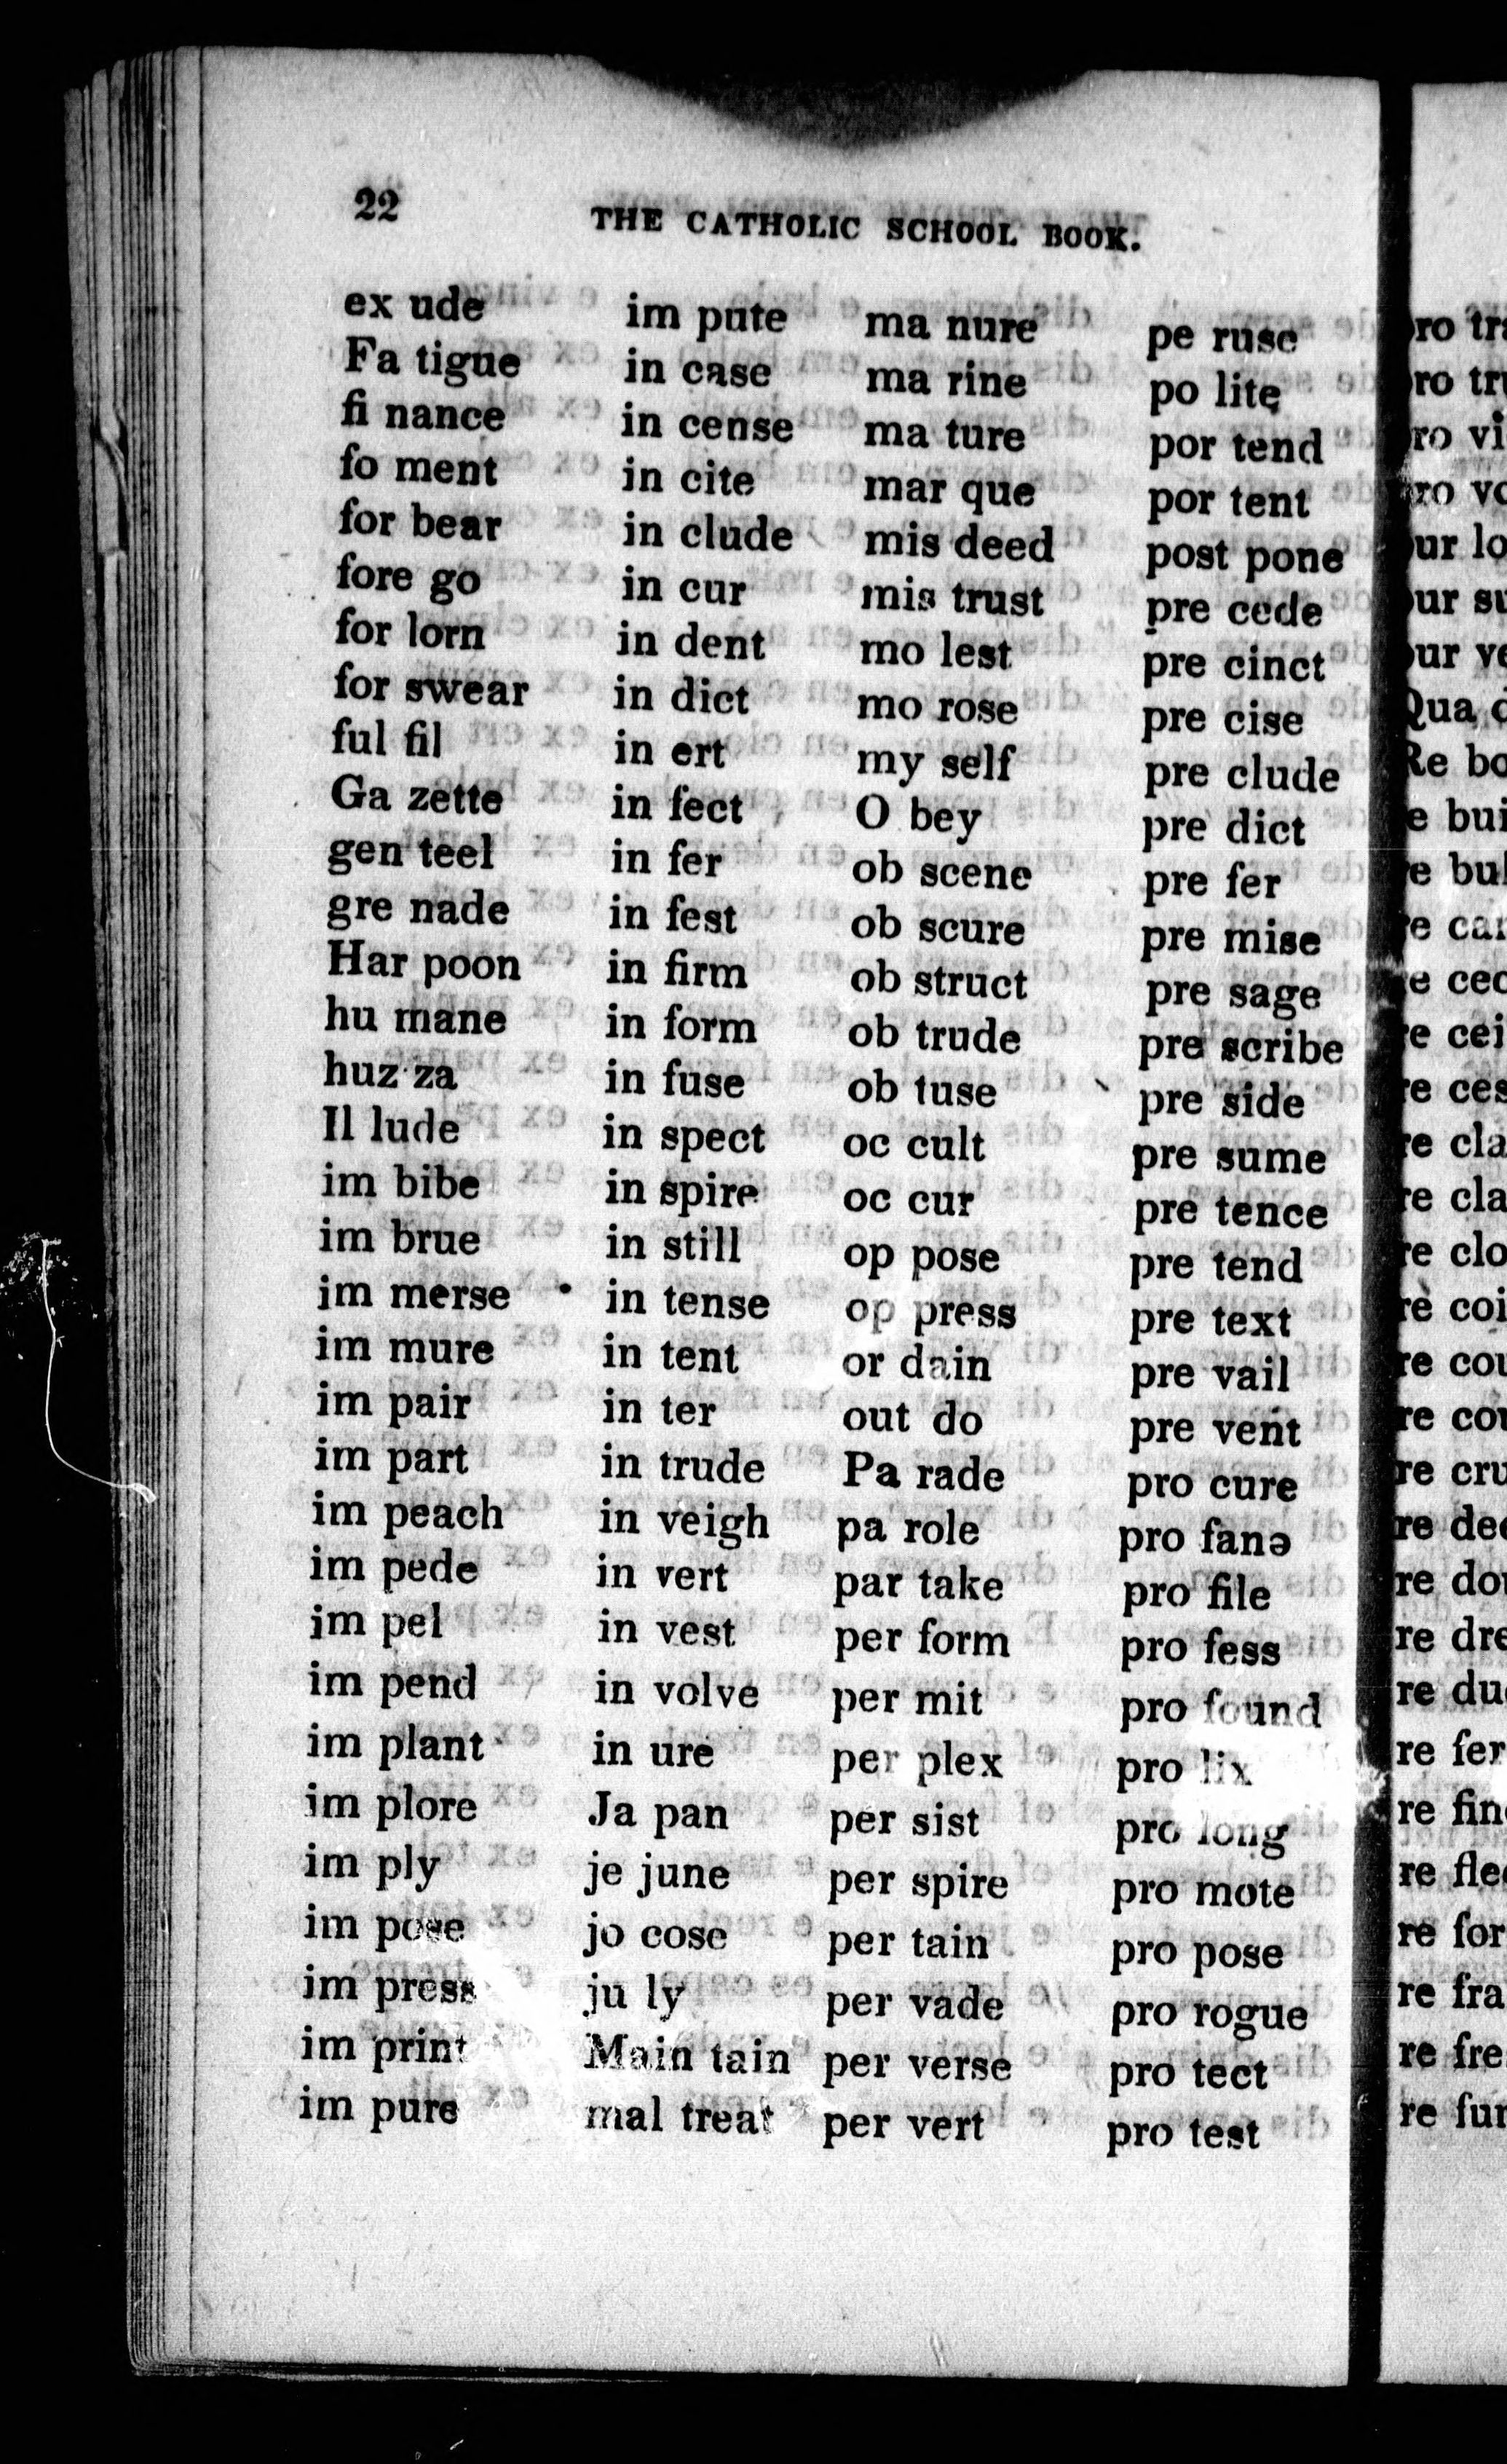 22
THE CATHOLIC SCHOOL BOOK.
ex ude
Fa tigue
fi nance
fo ment
for bear
fore go
for lorn
for swear
ful fil
Ga zette
gen teel
gre nade
Har poon
hu mane
huz za
Il lude
im bibe
im brue
im merse
im mure
im pair
im part
im peach
im pede
im pel
im pend
im plant
im plore
im ply
im pose
im press
im print
im pure
im pute
in case
in cense
in cite
in clude
in cur
in dent
in dict
in ert
in fect
in fer
in fest
in firm
in form
in fuse
in spect
in spire
in still
in tense
in tent
in ter
in trude
in veigh
in vert
in vest
in volve
in ure
Ja pan
je june
jo cose
ju ly
Main tain
mal treat
ma nure
ma rine
ma ture
mar que
mis deed
mis trust
mo lest
mo rose
my self
O bey
ob scene
ob scure
ob struct
ob trude
ob tuse
oc cult
oc cur
op pose
op press
or dain
out do
Pa rade
pa role
par take
per form
per mit
per plex
per sist
per spire
per tain
per vade
per verse
per vert
pe ruse
po lite
por tend
por tent
post pone
pre cede
pre cinct
pre cise
pre clude
pre dict
pre fer
pre mise
pre sage
pre scribe
pre side
pre sume
pre tence
pre tend
pre text
pre vail
pre vent
pro cure
pro fane
pro file
pro fess
pro found
pro lix
pro long
pro mote
pro pose
pro rogue
pro tect
pro test